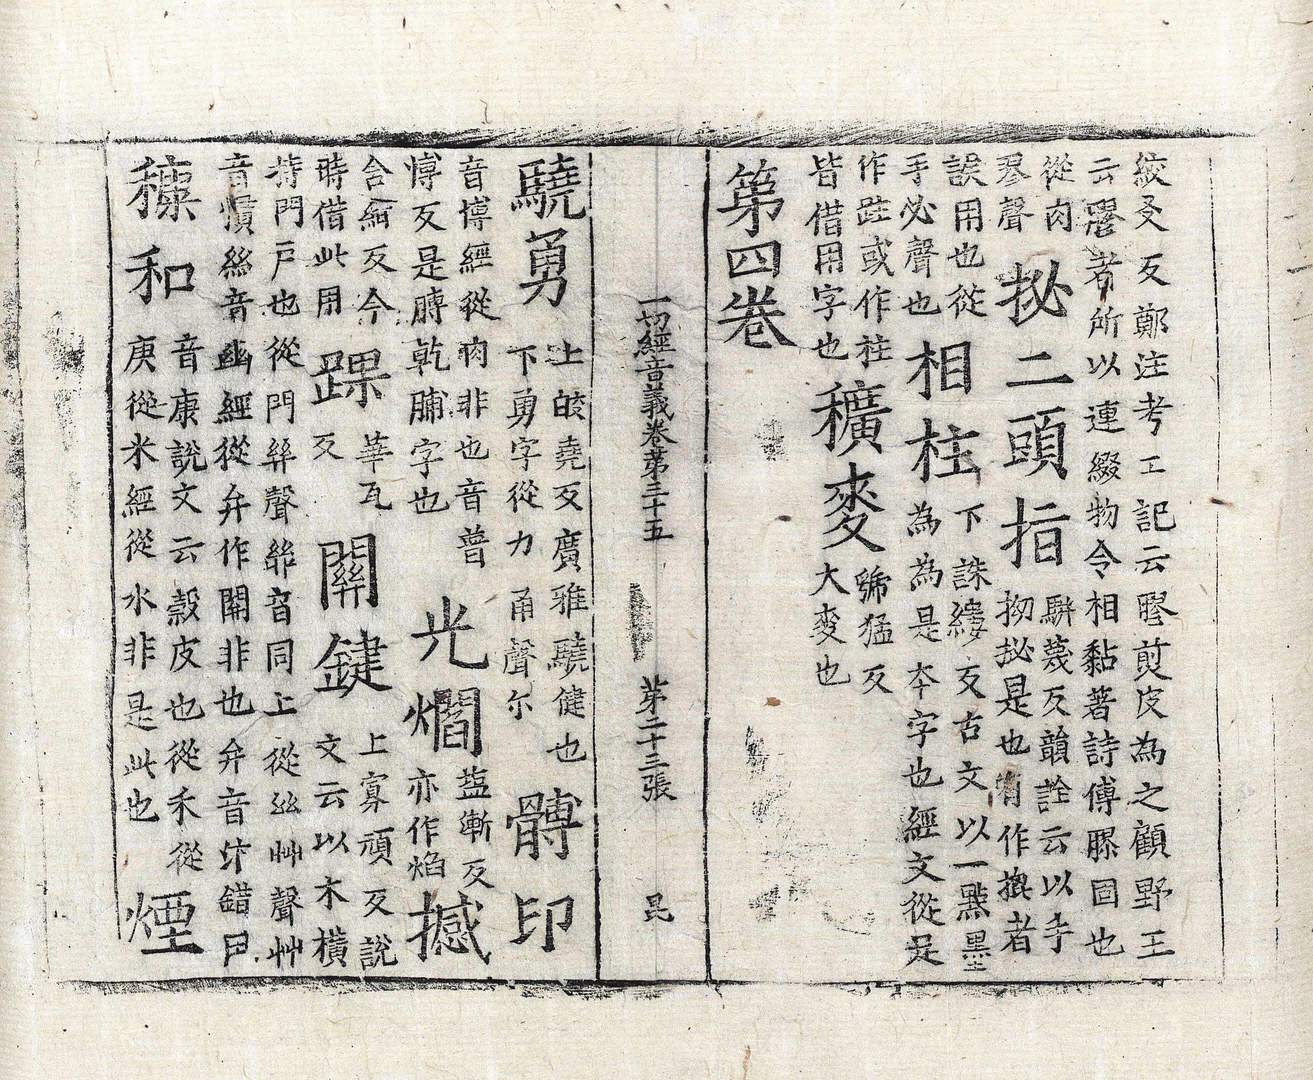 絞爻反鄭注考工記云膠煎皮為之顧野王
云膠者所以連綴物令相黏著詩傳膠固也
從肉
翏聲
㧙二頭指
駢蔑反韻詮云以手
拗㧙是也有作撆者
誤用也從
手必聲也
相柱
下誅縷反古文以一點墨
為為是本字也經文從足
作跓或作拄
皆借用字也
穬麥
虢猛反
大麥也
第四卷
一切經音義卷第三十五 第二十三張 昆
驍勇
上皎堯反廣雅驍健也
下勇字從力甬聲尓
髆印
音博經從肉非也音普
愽反是膊乾脯字也
光爓
塩漸反
亦作焰
撼
含紺反今
時借此用
踝
華瓦
反
關鍵
上寡頑反說
文云以木橫
持門戸也從門𢇇聲𢇇音同上從𢆶丱聲丱
音慣𢆶音幽經從弁作開非也弁音卞錯
穅和
音康說文云糓皮也從禾從
庚從米經從水非是此也
煙